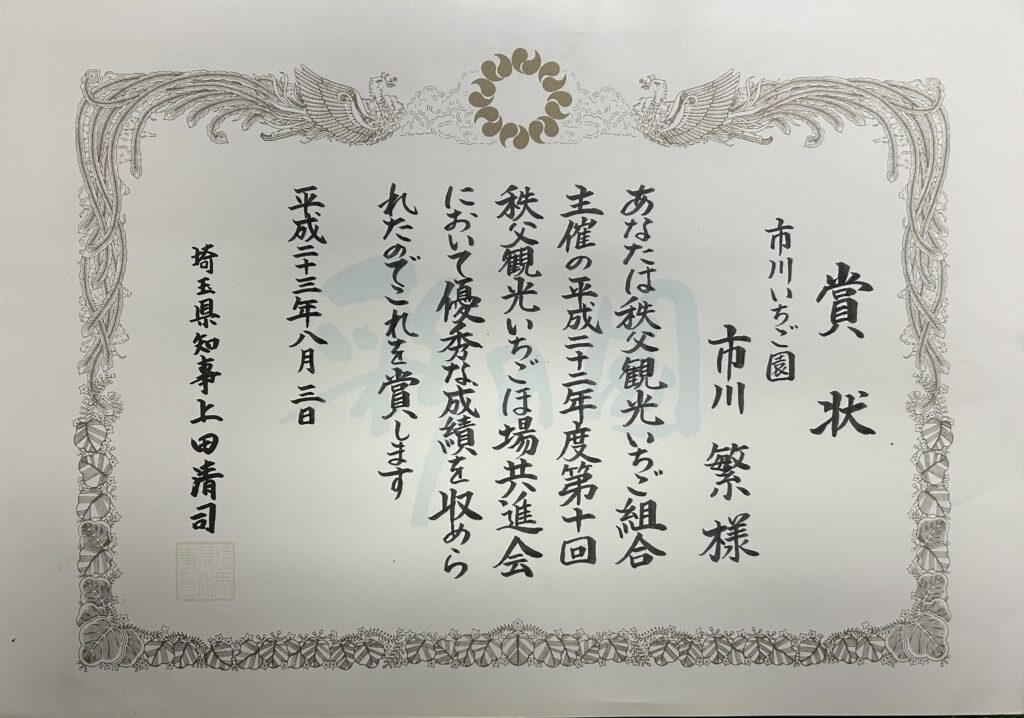 賞状
市川いちご園
市川繁様
あなたは秩父観光いちご組合
主催の平成二十二年度第十回
秩父観光いちごほ場共進会
において優秀な成績を収めら
れたのでこれを賞します
平成二十三年八月三日
埼玉県知事上田清司
埼玉県知事印
彩の国